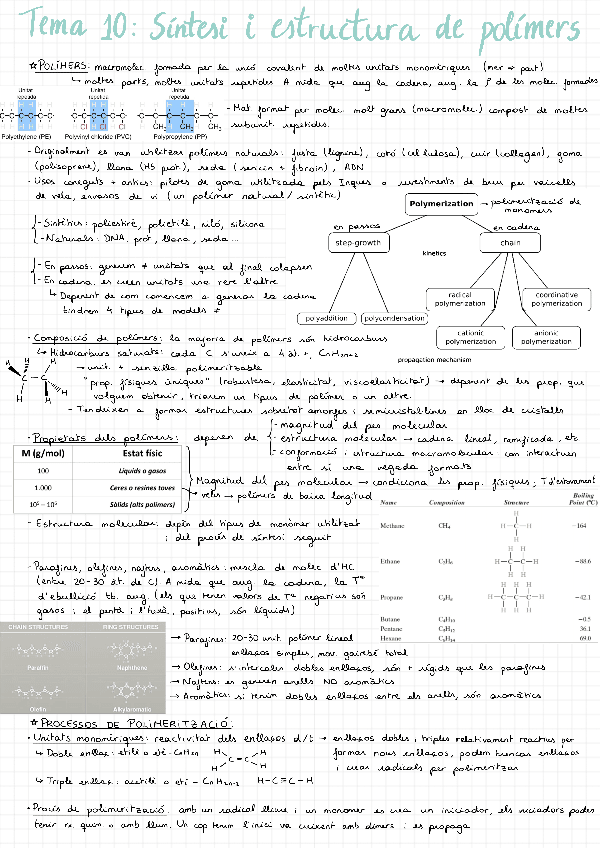 Tema 10: Síntesi i estructura de polímers
☆ POLÍMERS: macromolec formada per la unió covalent de moltes unitats monomèriques (mer → part)
↳ moltes parts, moltes unitats repetides. A mida que aug la cadena, aug. la ρ de les molec. formades
Unitat repetida
Unitat repetida
Unitat repetida
Polyethylene (PE)
Polyvinyl chloride (PVC)
Polypropylene (PP)
- Mat format per molec. molt grans (macromolec.) compost de moltes
subunit. repetides.
- Originalment es van utilitzar polímers naturals: fusta (lignine), cotó (cel·lulosa), cuir (collagen), goma
(polisoprene), llana (HS prot), seda (sericin + fibroin), ADN
- Usos coneguts + antics: pilotes de goma utilitzada pels Inques o revestiments de breu per vaixells
de vela, envasos de vi (un polímer natural / sintètic)
Polymerization → polimerització de
monomers
en passos
en cadena
step-growth
chain
kinetics
polyaddition
polycondensation
radical polymerization
coordinative polymerization
cationic polymerization
anionic polymerization
propagation mechanism
- Sintètics: poliestirè, polietilè, niló, silicona
- Naturals: DNA, prot, llana, seda...
- En passos: generem + unitats que al final col·apsen
- En cadena: es creen unitats una rere l'altre
↳ Depenent de com comencem a generar la cadena
tindrem 4 tipus de models +
- Composició de polímers: la majoria de polímers són hidrocarburs
↳ Hidrocarburs saturats: cada C s'uneix a 4 àt. +. CnH2n+2
→ unit. + senzilla polimeritzable
"prop. físiques úniques" (robustesa, elasticitat, viscoelasticitat) → depenent de les prop. que
volguem obtenir, triarem un tipus de polímer o un altre.
- Tendeixen a formar estructures sobretot amorfes i semicristal·lines en lloc de cristalls
- Propietats dels polímers: depenen de
- magnitud del pes molecular
- estructura molecular → cadena lineal, ramificada, etc
- conformació i estructura macromolecular: com interactuen
entre si una vegada formats
M (g/mol) Estat físic
100 Líquids o gasos
1.000 Ceres o resines toves
Sòlids (alts polímers)
Magnitud del pes molecular → condiciona les prop. físiques; T d'estovament
→ polímers de baixa longitud
- Estructura molecular: depèn del tipus de monòmer utilitzat
i del procés de síntesi seguit
Name Composition Structure Boiling Point (°C)
Methane CH4 -164
Ethane C2H6 -88.6
Propane C3H8 -42.1
Butane C4H10 -0.5
Pentane C5H12 36.1
Hexane C6H14 69.0
- Parafines, olefines, naftens, aromàtics: mescla de molec d'HC
(entre 20-30 àt. de C). A mida que aug. la cadena, la Tª
d'ebullició tb. aug. (els que tenen valors de Tª negatius són
gasos i el pentà i l'hexà, positius, són líquids)
CHAIN STRUCTURES
RING STRUCTURES
Paraffin
Naphthene
Olefin
Alkylaromatic
→ Parafines: 20-30 unit. polímer lineal
enllaços simples, mov. gairebé total
→ Olefines: s'intercalen dobles enllaços, són + rígids que les parafines
→ Naftens: es generen anells NO aromàtics
→ Aromàtics: si tenim dobles enllaços entre els anells, són aromàtics
☆ PROCESSOS DE POLIMERITZACIÓ:
- Unitats monomèriques: reactivitat dels enllaços d/t → enllaços dobles i triples relativament reactius per
formar nous enllaços, podem trencar enllaços
i crear radicals per polimeritzar
↳ Doble enllaç: etilè o etè - CnH2n
↳ Triple enllaç: acetilè o etí - CnH2n-2 H-C≡C-H
- Procés de polimerització: amb un radical lliure i un monomer es crea un iniciador, els iniciadors poden
tenir re. quím o amb llum. Un cop tenim l'inici va creixent amb dímers i es propaga